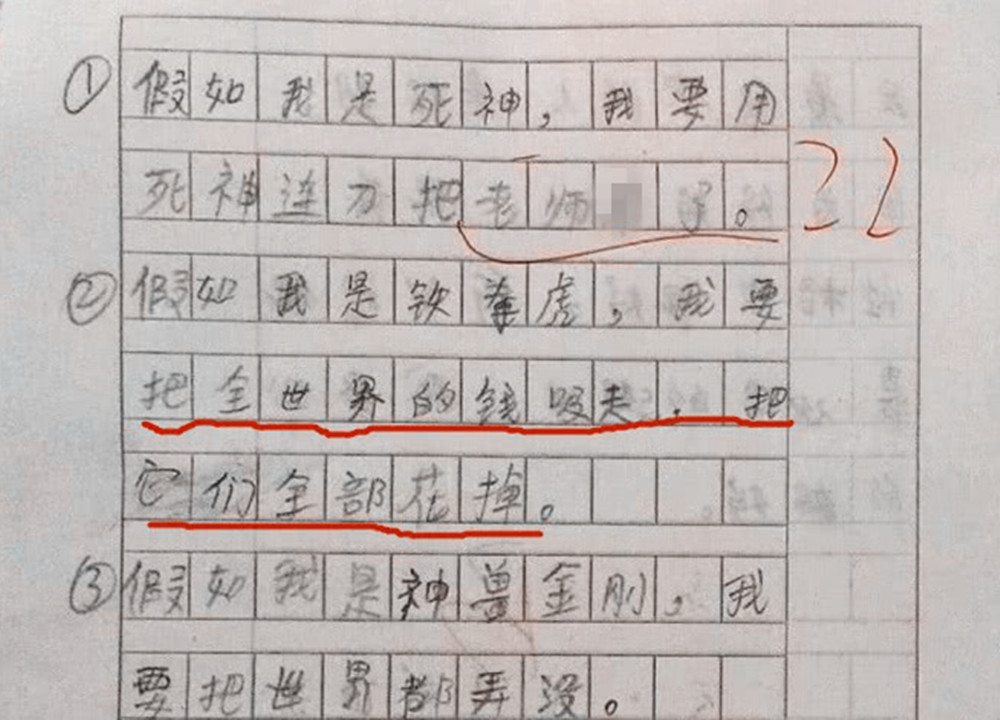 ① 假如我是死神，我要用
死神连刀把老师 了。
② 假如我是铁拳虎，我要
把全世界的钱吸走，把
它们全部花掉。
③ 假如我是神兽金刚，我
要把世界都弄没。